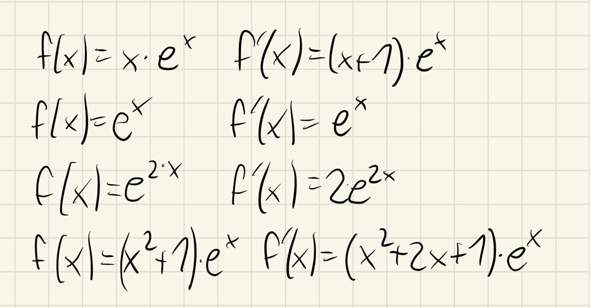 f(x)=x·eˣ f'(x)=(x+1)·eˣ
f(x)=eˣ f'(x)=eˣ
f(x)=e²·ˣ f'(x)=2e²ˣ
f(x)=(x²+1)·eˣ f'(x)=(x²+2x+1)·eˣ